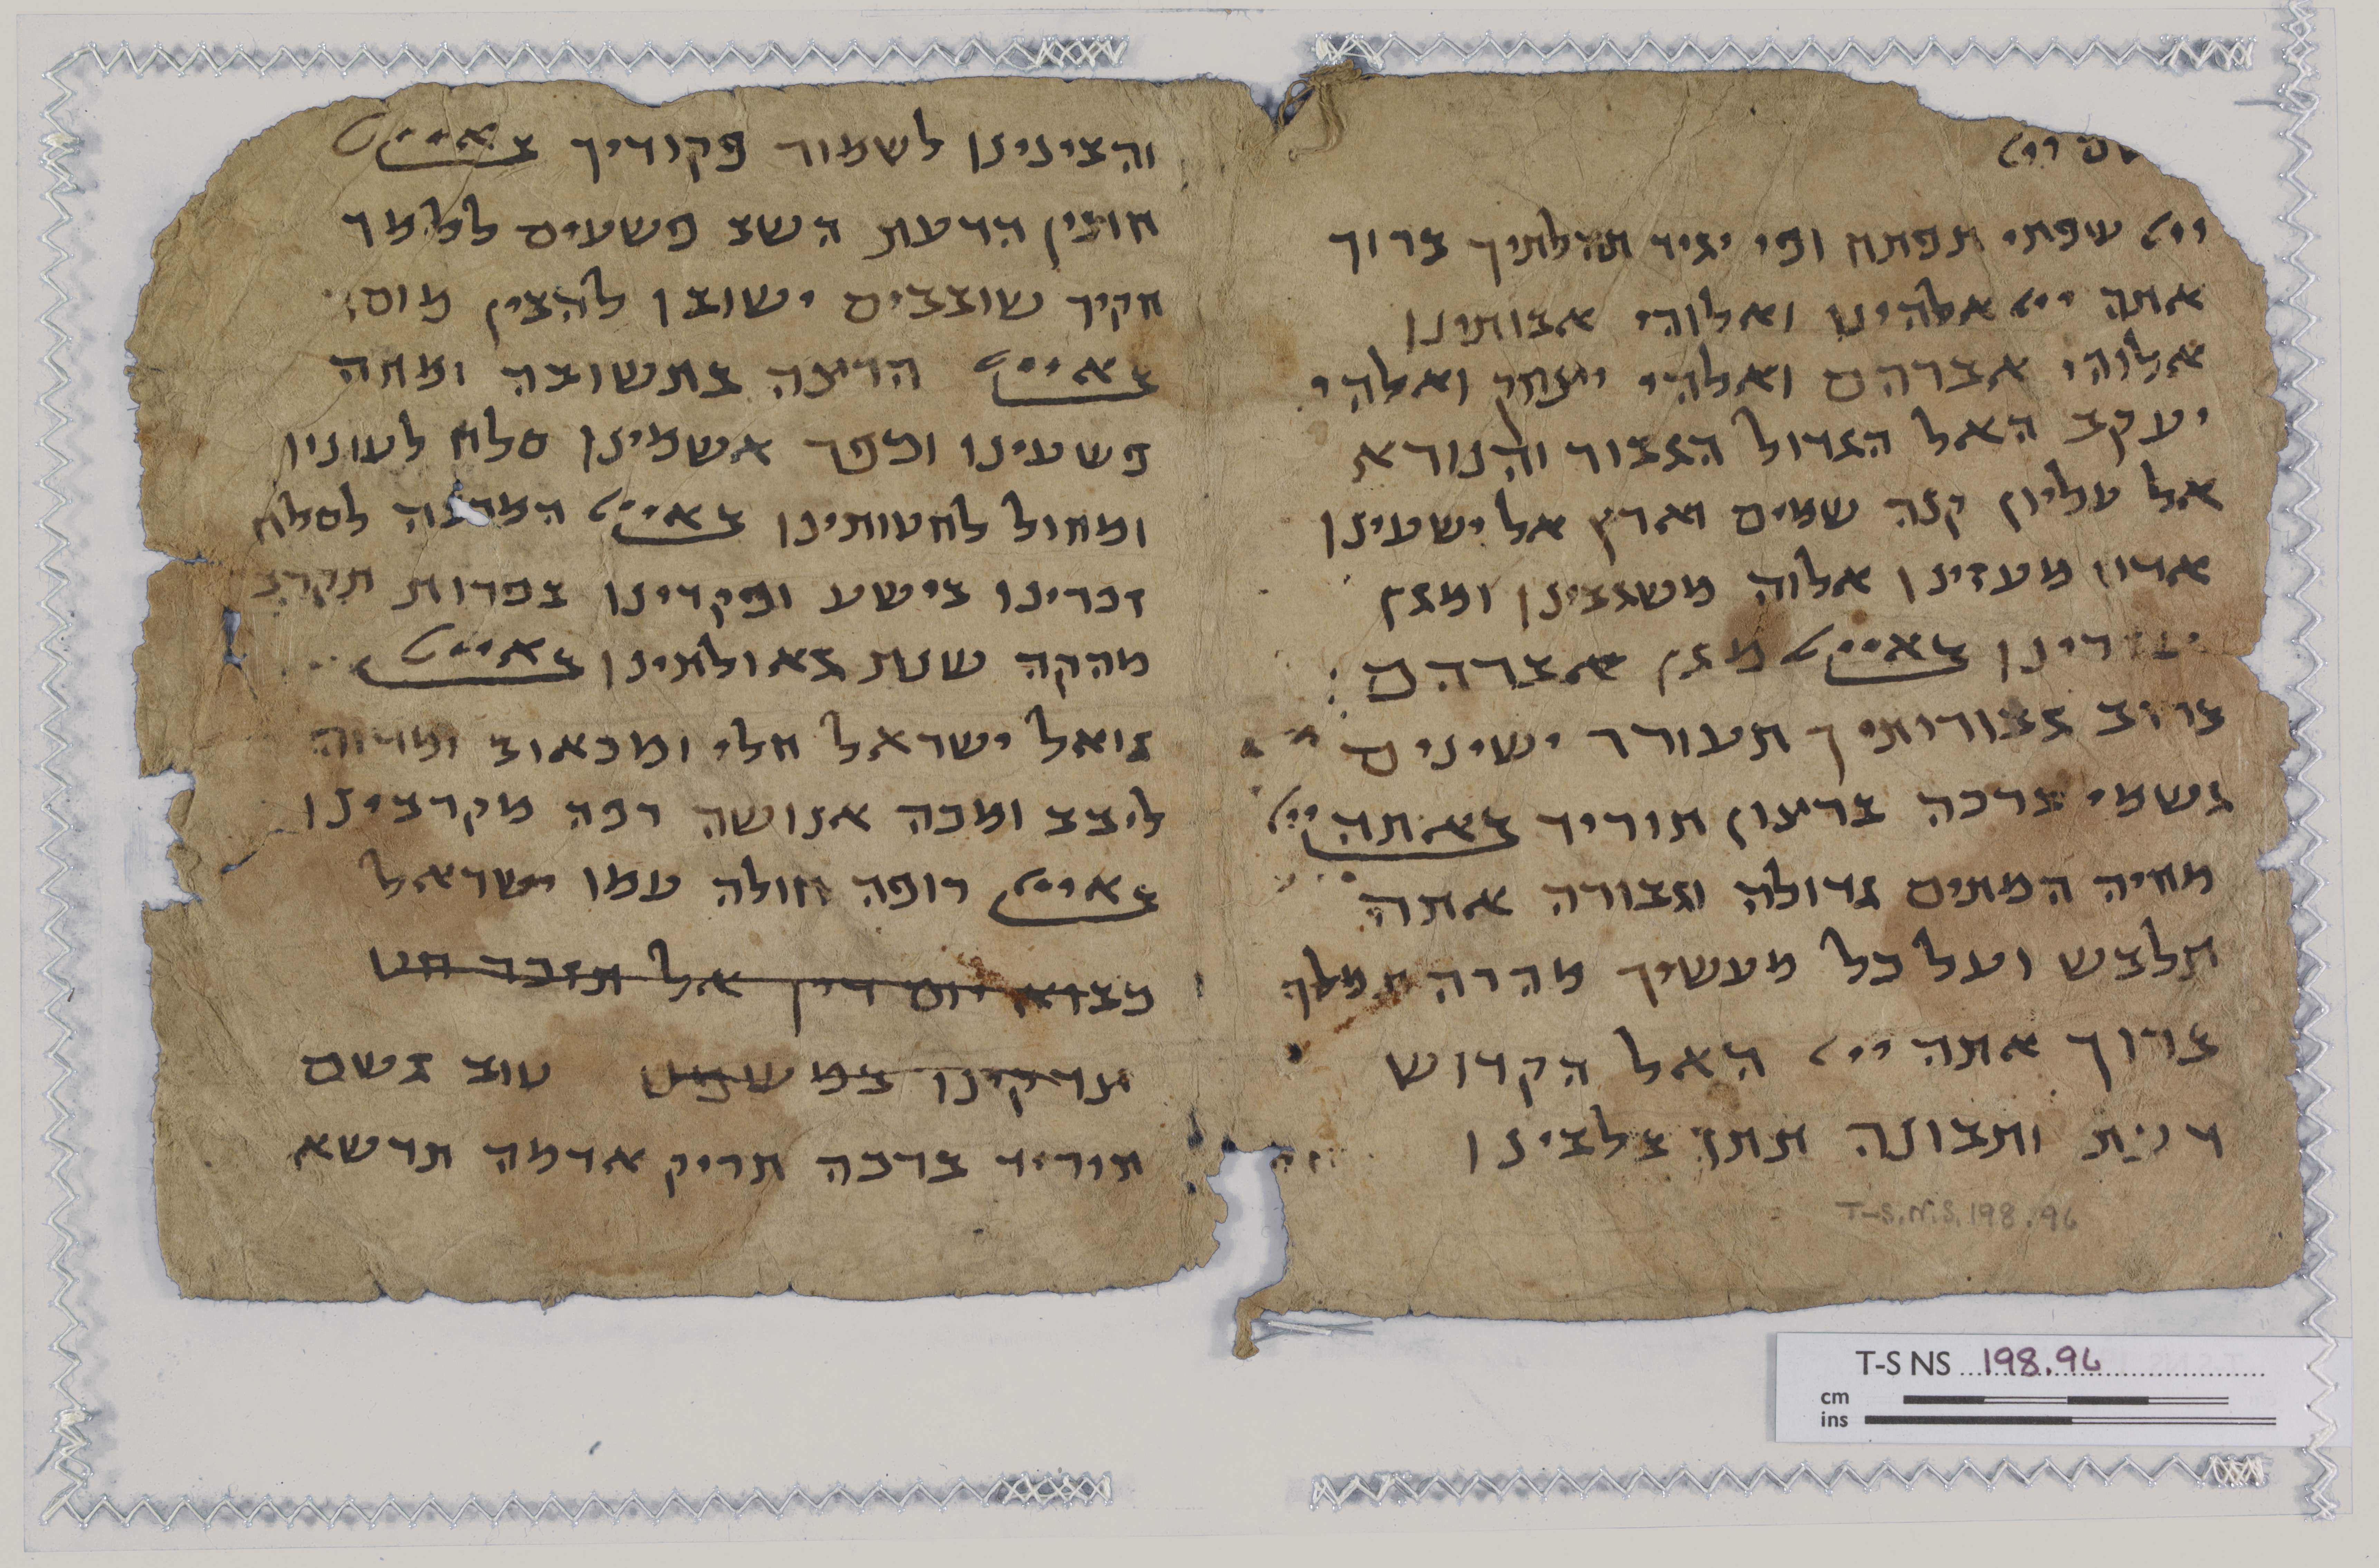 שם ייי
ייי שפתי תפתח ופי יגיד תהלתיך ברוך
אתה ייי אלהינו ואלוהי אבותינו
אלוהי אברהם ואלהי יצחק ואלהי
יעקב האל הגדול הגבור והנורא
אל עליון קנה שמים וארץ אל ישעינו
אדון מעזינו אלוה משגבינו ומגן
באייי מגן אברהם :
ברוב גבורותיך תעורר ישינים
גשמי ברכה ברצון תוריד באתה ייי
מחיה המתים גדולה וגבורה אתה
תלבש ועל כל מעשיך מהרה תמלך
ברוך אתה ייי האל הקדוש
ותבונה תתן בלבינו
והבינינו לשמור פקודיך באייי
חונין הדעת השב פשעים ללמד
חקיך שובבים ישובון להבין
באייי הרוצה בתשובה ומחה
פשעינו וכפר אשמינו סלח לעונינו
ומחול לחטותינו באייי המרבה לסלח
זכרינו בישע ופקדינו בפדות תקרב
מהקה שנת גאולתינו באייי
גואל ישראל חלי ומכאוב ומדוה
ליבב ומכה אנושה רפה מקרבינו
באייי רופה חולה עמו ישראל
מבוא יום דין אל תזכר חט
צדקינו במשפט טוב גשם
תוריד ברכה תריק אדמה תדשא
T-S.N.S. 198.96
T-S NS 198.96
cm
ins